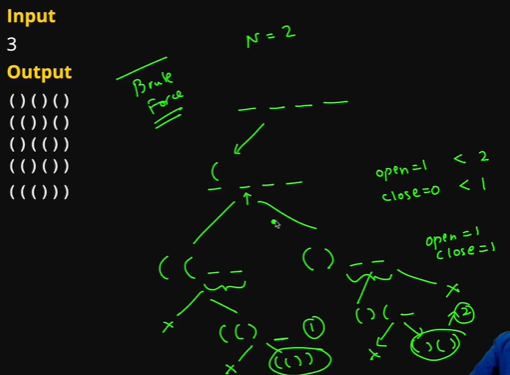 Input
3
Output
()()()
(())()
()(())
(()())
((()))
N = 2
Brute
Force
_ _ _ _
(
_ _ _ _
open=1 < 2
close=0 < 1
open=1
close=1
( ( _ _
( ) _ _
x
(() _
①
()( _
x
②
x
(())
x
()()